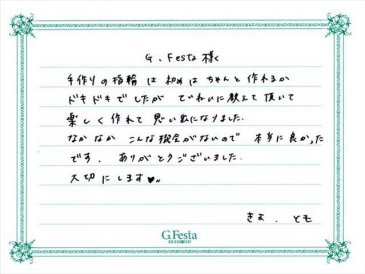 G.Festa 様
手作りの指輪は初めはちゃんと作れるか
ドキドキでしたが ていねいに教えて頂いて
楽しく作れて思い出になりました.
なかなか こんな機会がないので 本当に良かった
です. ありがとうございました.
大切にします♥.
きよ. とも
G.Festa
DIAMOND